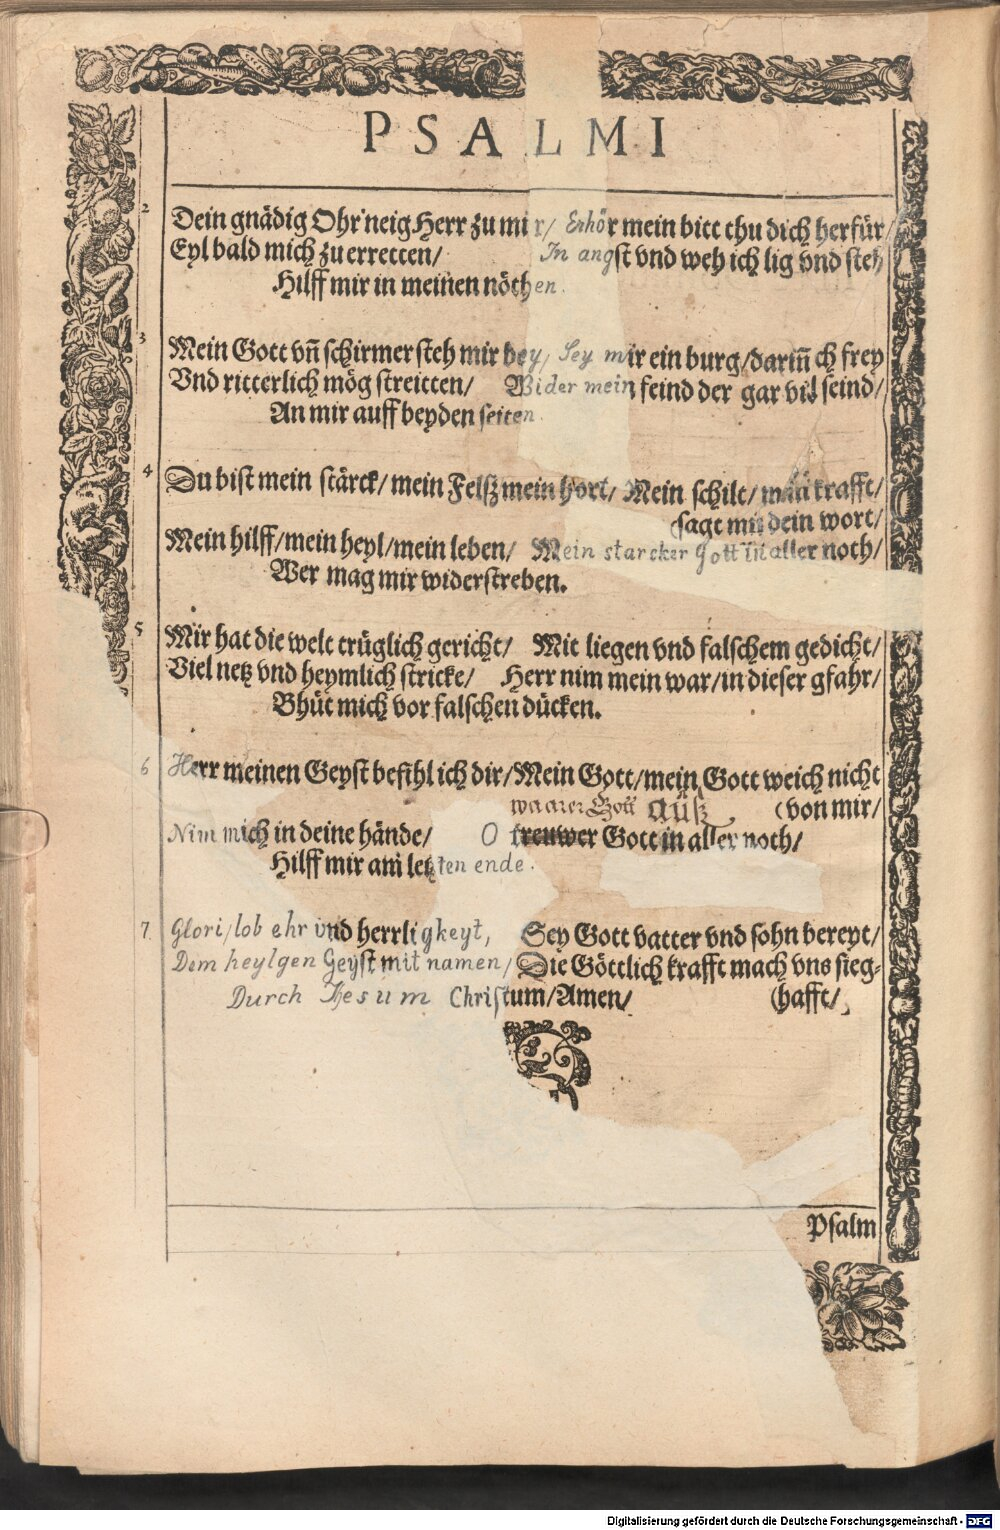 PSALMI
2 Dein gnädig Ohr neig Herr zu mir/ Erhör mein bitt thu dich herfür/
Eyl bald mich zu erretten/ In angst vnd weh ich lig vnd steh
Hilff mir in meinen nöthen.
3 Mein Gott vñ schirmer steh mir bey/ Sey mir ein burg/ dariñ ch frey
Vnd ritterlich mög streitten/ Wider mein feind der gar vil seind/
An mir auff beyden seiten.
4 Du bist mein stärck/ mein Felß mein hort/ Mein schilt/ mein krafft/
(sagt mir dein wort/
Mein hilff/ mein heyl/ mein leben/ Mein starcker Gott in aller noth/
Wer mag mir widerstreben.
5 Mir hat die welt trüglich gericht/ Mit liegen vnd falschem gedicht/
Viel netz vnd heymlich stricke/ Herr nim mein war/ in dieser gfahr/
Bhüt mich vor falschen dücken.
6 Herr meinen Geyst befihl ich dir/ Mein Gott/ mein Gott weich nicht
waarer Gott auß (von mir/
Nim mich in deine hände/ O trewer Gott in aller noth/
Hilff mir am letzten ende.
7 Glori/ lob ehr vnd herrligkeyt, Sey Gott vatter vnd sohn bereyt/
Dem heylgen Geyst mit namen/ Die Göttlich krafft mach vns sieg-
Durch Jhesum Christum/ Amen/ (hafft/
Psalm
Digitalisierung gefördert durch die Deutsche Forschungsgemeinschaft - DFG